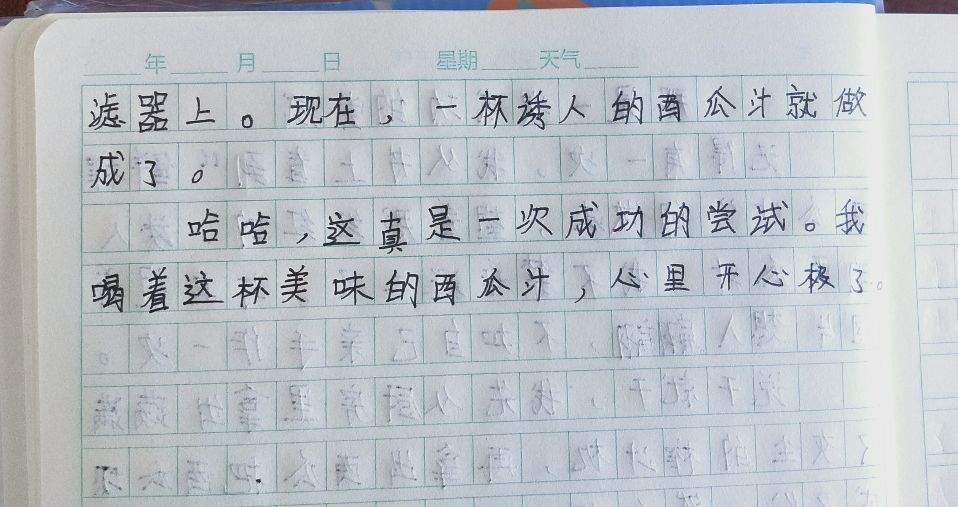 年 月 日 星期 天气
滤器上。现在，一杯诱人的西瓜汁就做
成了。
哈哈，这真是一次成功的尝试。我
喝着这杯美味的西瓜汁，心里开心极了。